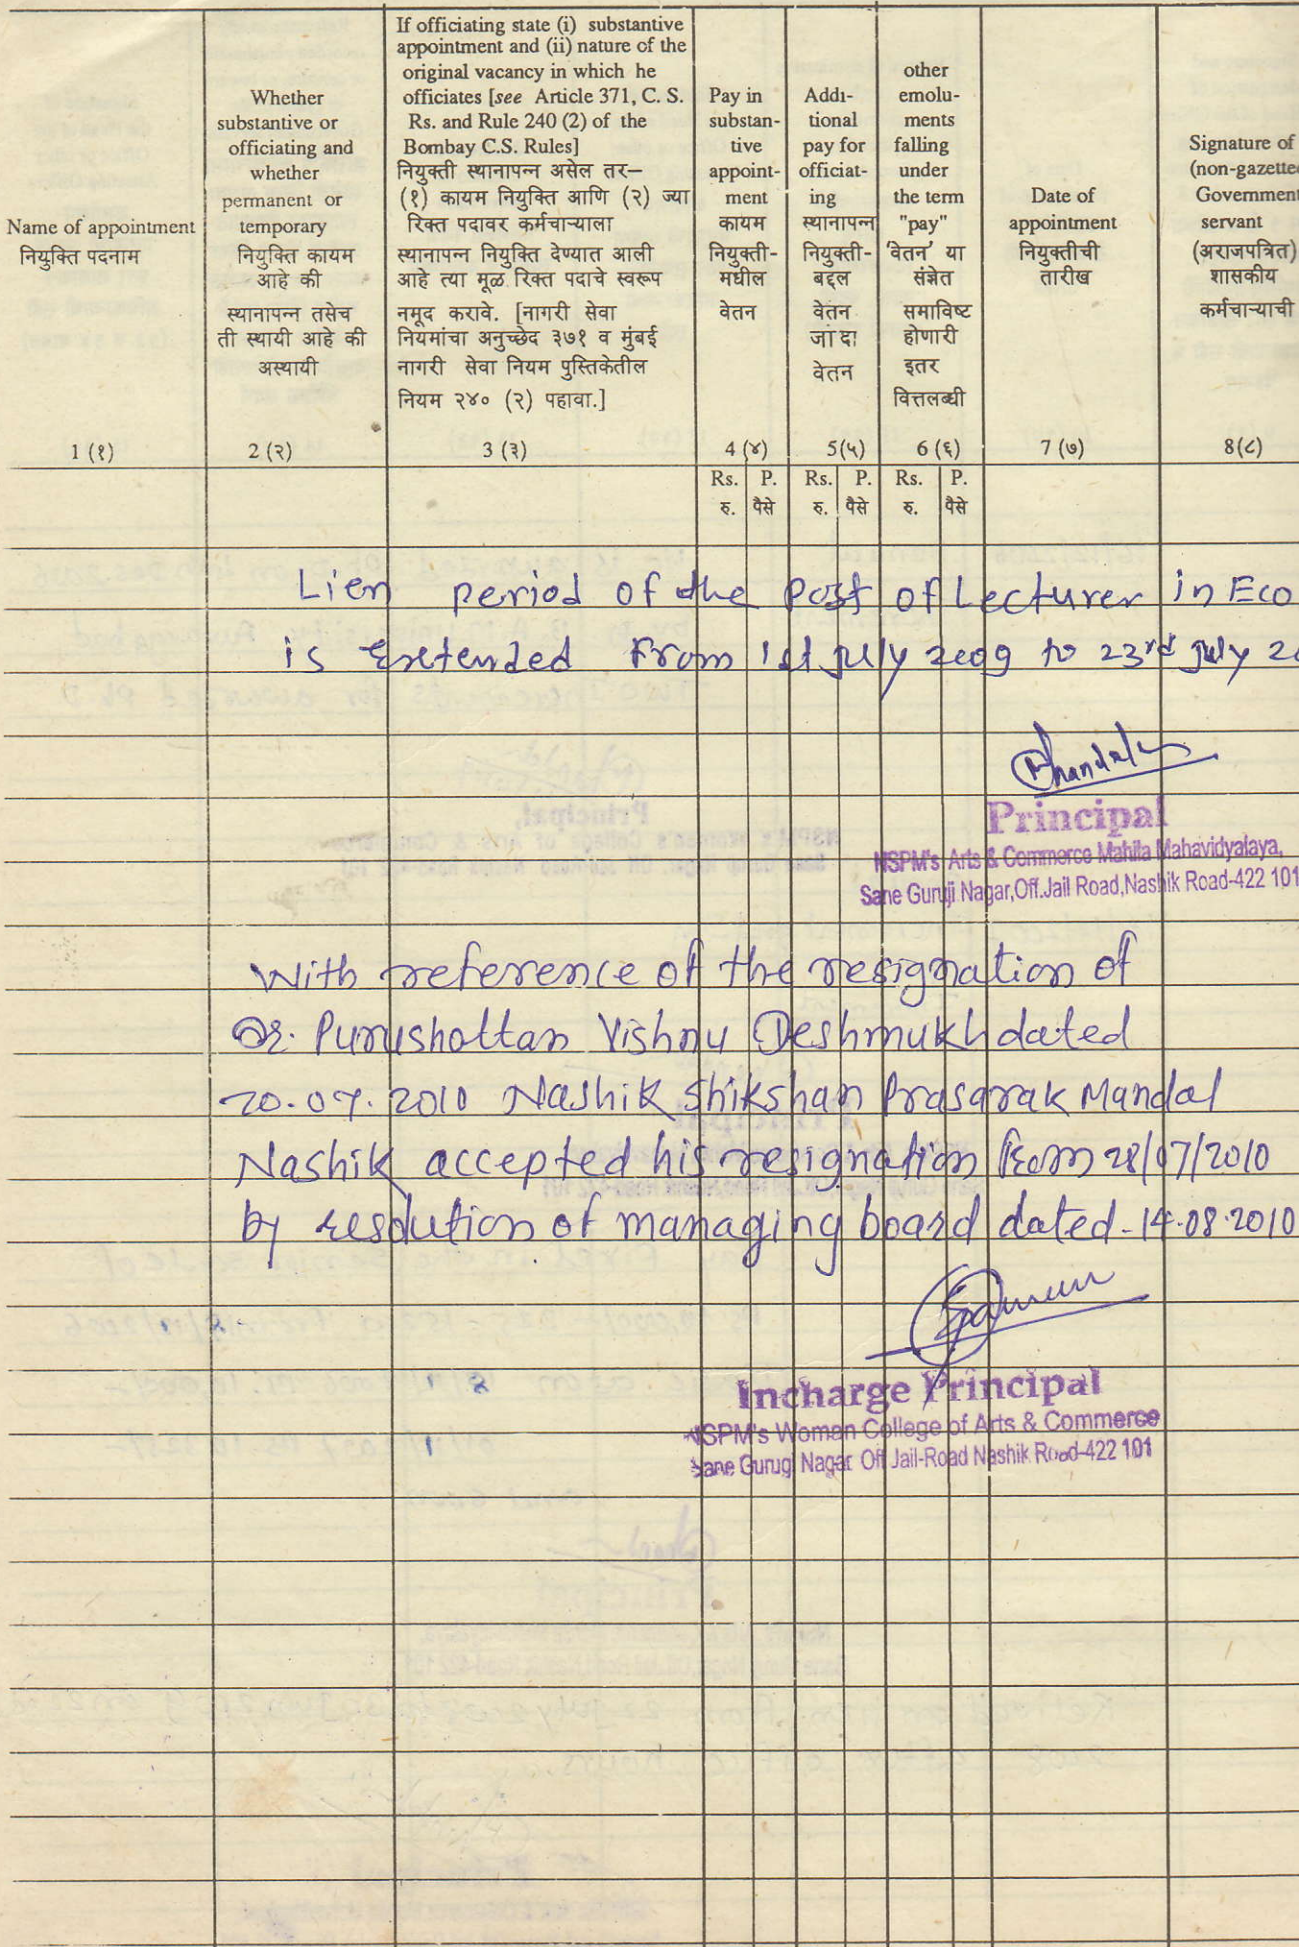 Name of appointment
नियुक्ति पदनाम
1 (१)
Whether
substantive or
officiating and
whether
permanent or
temporary
नियुक्ति कायम
आहे की
स्थानापन्न तसेच
ती स्थायी आहे की
अस्थायी
2 (२)
If officiating state (i) substantive
appointment and (ii) nature of the
original vacancy in which he
officiates [see Article 371, C. S.
Rs. and Rule 240 (2) of the
Bombay C.S. Rules]
नियुक्ती स्थानापन्न असेल तर—
(१) कायम नियुक्ति आणि (२) ज्या
रिक्त पदावर कर्मचाऱ्याला
स्थानापन्न नियुक्ति देण्यात आली
आहे त्या मूळ रिक्त पदाचे स्वरूप
नमूद करावे. [नागरी सेवा
नियमांचा अनुच्छेद ३७१ व मुंबई
नागरी सेवा नियम पुस्तिकेतील
नियम २४० (२) पहावा.]
3 (३)
Pay in
substan-
tive
appoint-
ment
कायम
नियुक्ती-
मधील
वेतन
4 (४)
Rs. P.
रु. पैसे
Addi-
tional
pay for
officiat-
ing
स्थानापन्न
नियुक्ती-
बद्दल
वेतन
जादा
वेतन
5(५)
Rs. P.
रु. पैसे
other
emolu-
ments
falling
under
the term
"pay"
'वेतन' या
संज्ञेत
समाविष्ट
होणारी
इतर
वित्तलब्धी
6 (६)
Rs. P.
रु. पैसे
Date of
appointment
नियुक्तीची
तारीख
7 (७)
Signature of
(non-gazetted
Government
servant
(अराजपत्रित)
शासकीय
कर्मचाऱ्याची
8(८)
Lien period of the post of Lecturer in Eco
is Extended From 1st july 2009 to 23rd july 20
Principal
NSPM's Arts & Commerce Mahila Mahavidyalaya,
Sane Guruji Nagar,Off.Jail Road,Nashik Road-422 101
With reference of the resignation of
Dr. Purushottam Vishnu Deshmukh dated
20.07.2010 Nashik Shikshan Prasarak Mandal
Nashik accepted his resignation From 28/07/2010
by resolution of managing board dated-14.08.2010
Incharge Principal
NSPM's Woman College of Arts & Commerce
Sane Gurugi Nagar Off Jail-Road Nashik Road-422 101